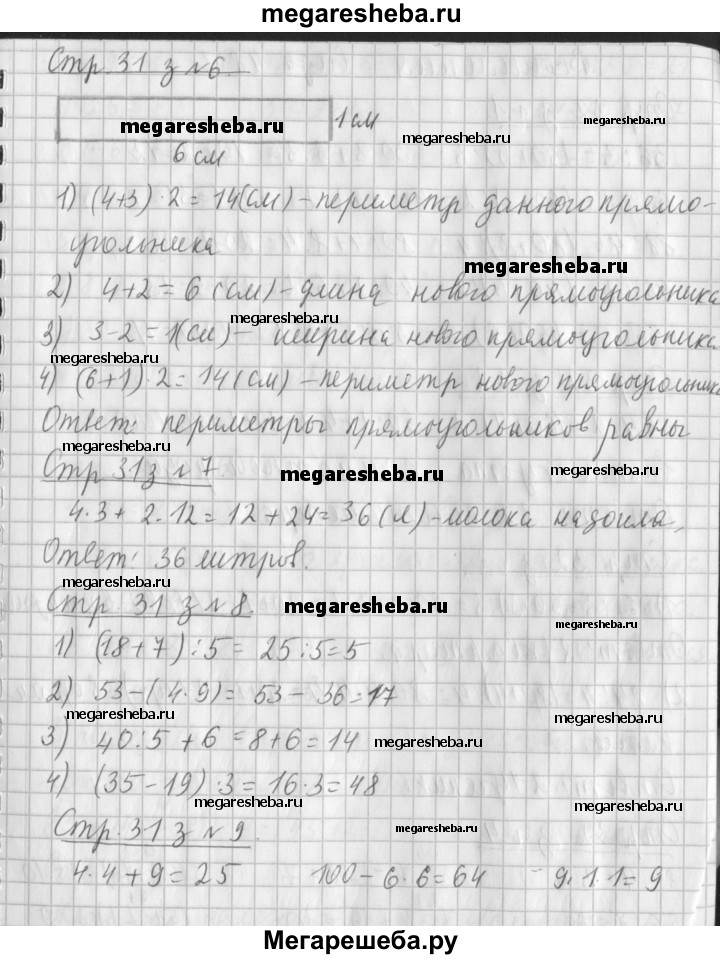 megaresheba.ru
Стр. 31 з №6
1 см
megaresheba.ru
megaresheba.ru
megaresheba.ru
6 см
1) (4+3)·2=14(см)-периметр данного прямо-
угольника
megaresheba.ru
2) 4+2=6(см)-длина нового прямоугольника
megaresheba.ru
3) 3-2=1(см)- ширина нового прямоугольника
megaresheba.ru
4) (6+1)·2=14(см)-периметр нового прямоугольника
Ответ: периметры прямоугольников равны
megaresheba.ru
Стр 31 з №7
megaresheba.ru
4·3+2·12=12+24=36(л)-молока надоила,
Ответ: 36 литров.
megaresheba.ru
Стр. 31 з №8.
megaresheba.ru
megaresheba.ru
1) (18+7):5=25:5=5
2) 53-(4·9)=53-36=17
megaresheba.ru
megaresheba.ru
3) 40:5+6=8+6=14
megaresheba.ru
4) (35-19)·3=16·3=48
megaresheba.ru
megaresheba.ru
Стр. 31 з №9.
megaresheba.ru
4·4+9=25 100-6·6=64 9·1·1=9
Мегарешеба.ру